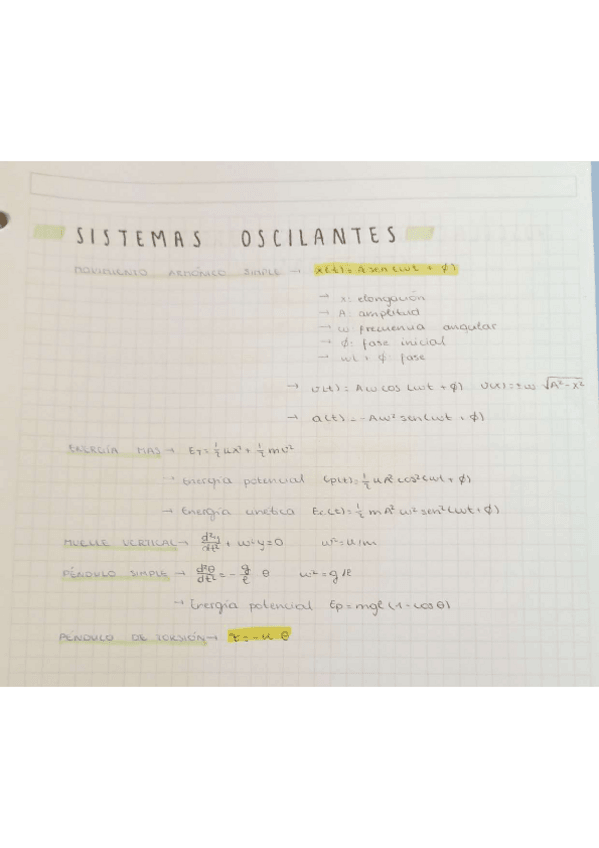 SISTEMAS OSCILANTES
MOVIMIENTO ARMÓNICO SIMPLE → x(t) = A sen (ωt + ϕ)
→ x: elongación
→ A: amplitud
→ ω frecuencia angular
→ ϕ: fase inicial
→ ωt + ϕ: fase
→ v(t) = Aω cos (ωt + ϕ) v(x) = ±ω √A²-x²
→ a(t) = -Aω² sen(ωt + ϕ)
ENERGÍA MAS → ET = ½ kx² + ½ mv²
→ Energía potencial Ep(t) = ½ kA² cos² (ωt + ϕ)
→ Energía cinética Ec(t) = ½ mA² ω² sen² (ωt + ϕ)
MUELLE VERTICAL → d²y/dt² + ω²y = 0 ω² = k/m
PÉNDULO SIMPLE → d²θ/dt² = - g/ℓ θ ω² = g/ℓ
→ Energía potencial Ep = mgℓ (1 - cos θ)
PÉNDULO DE TORSIÓN → τ = -k θ